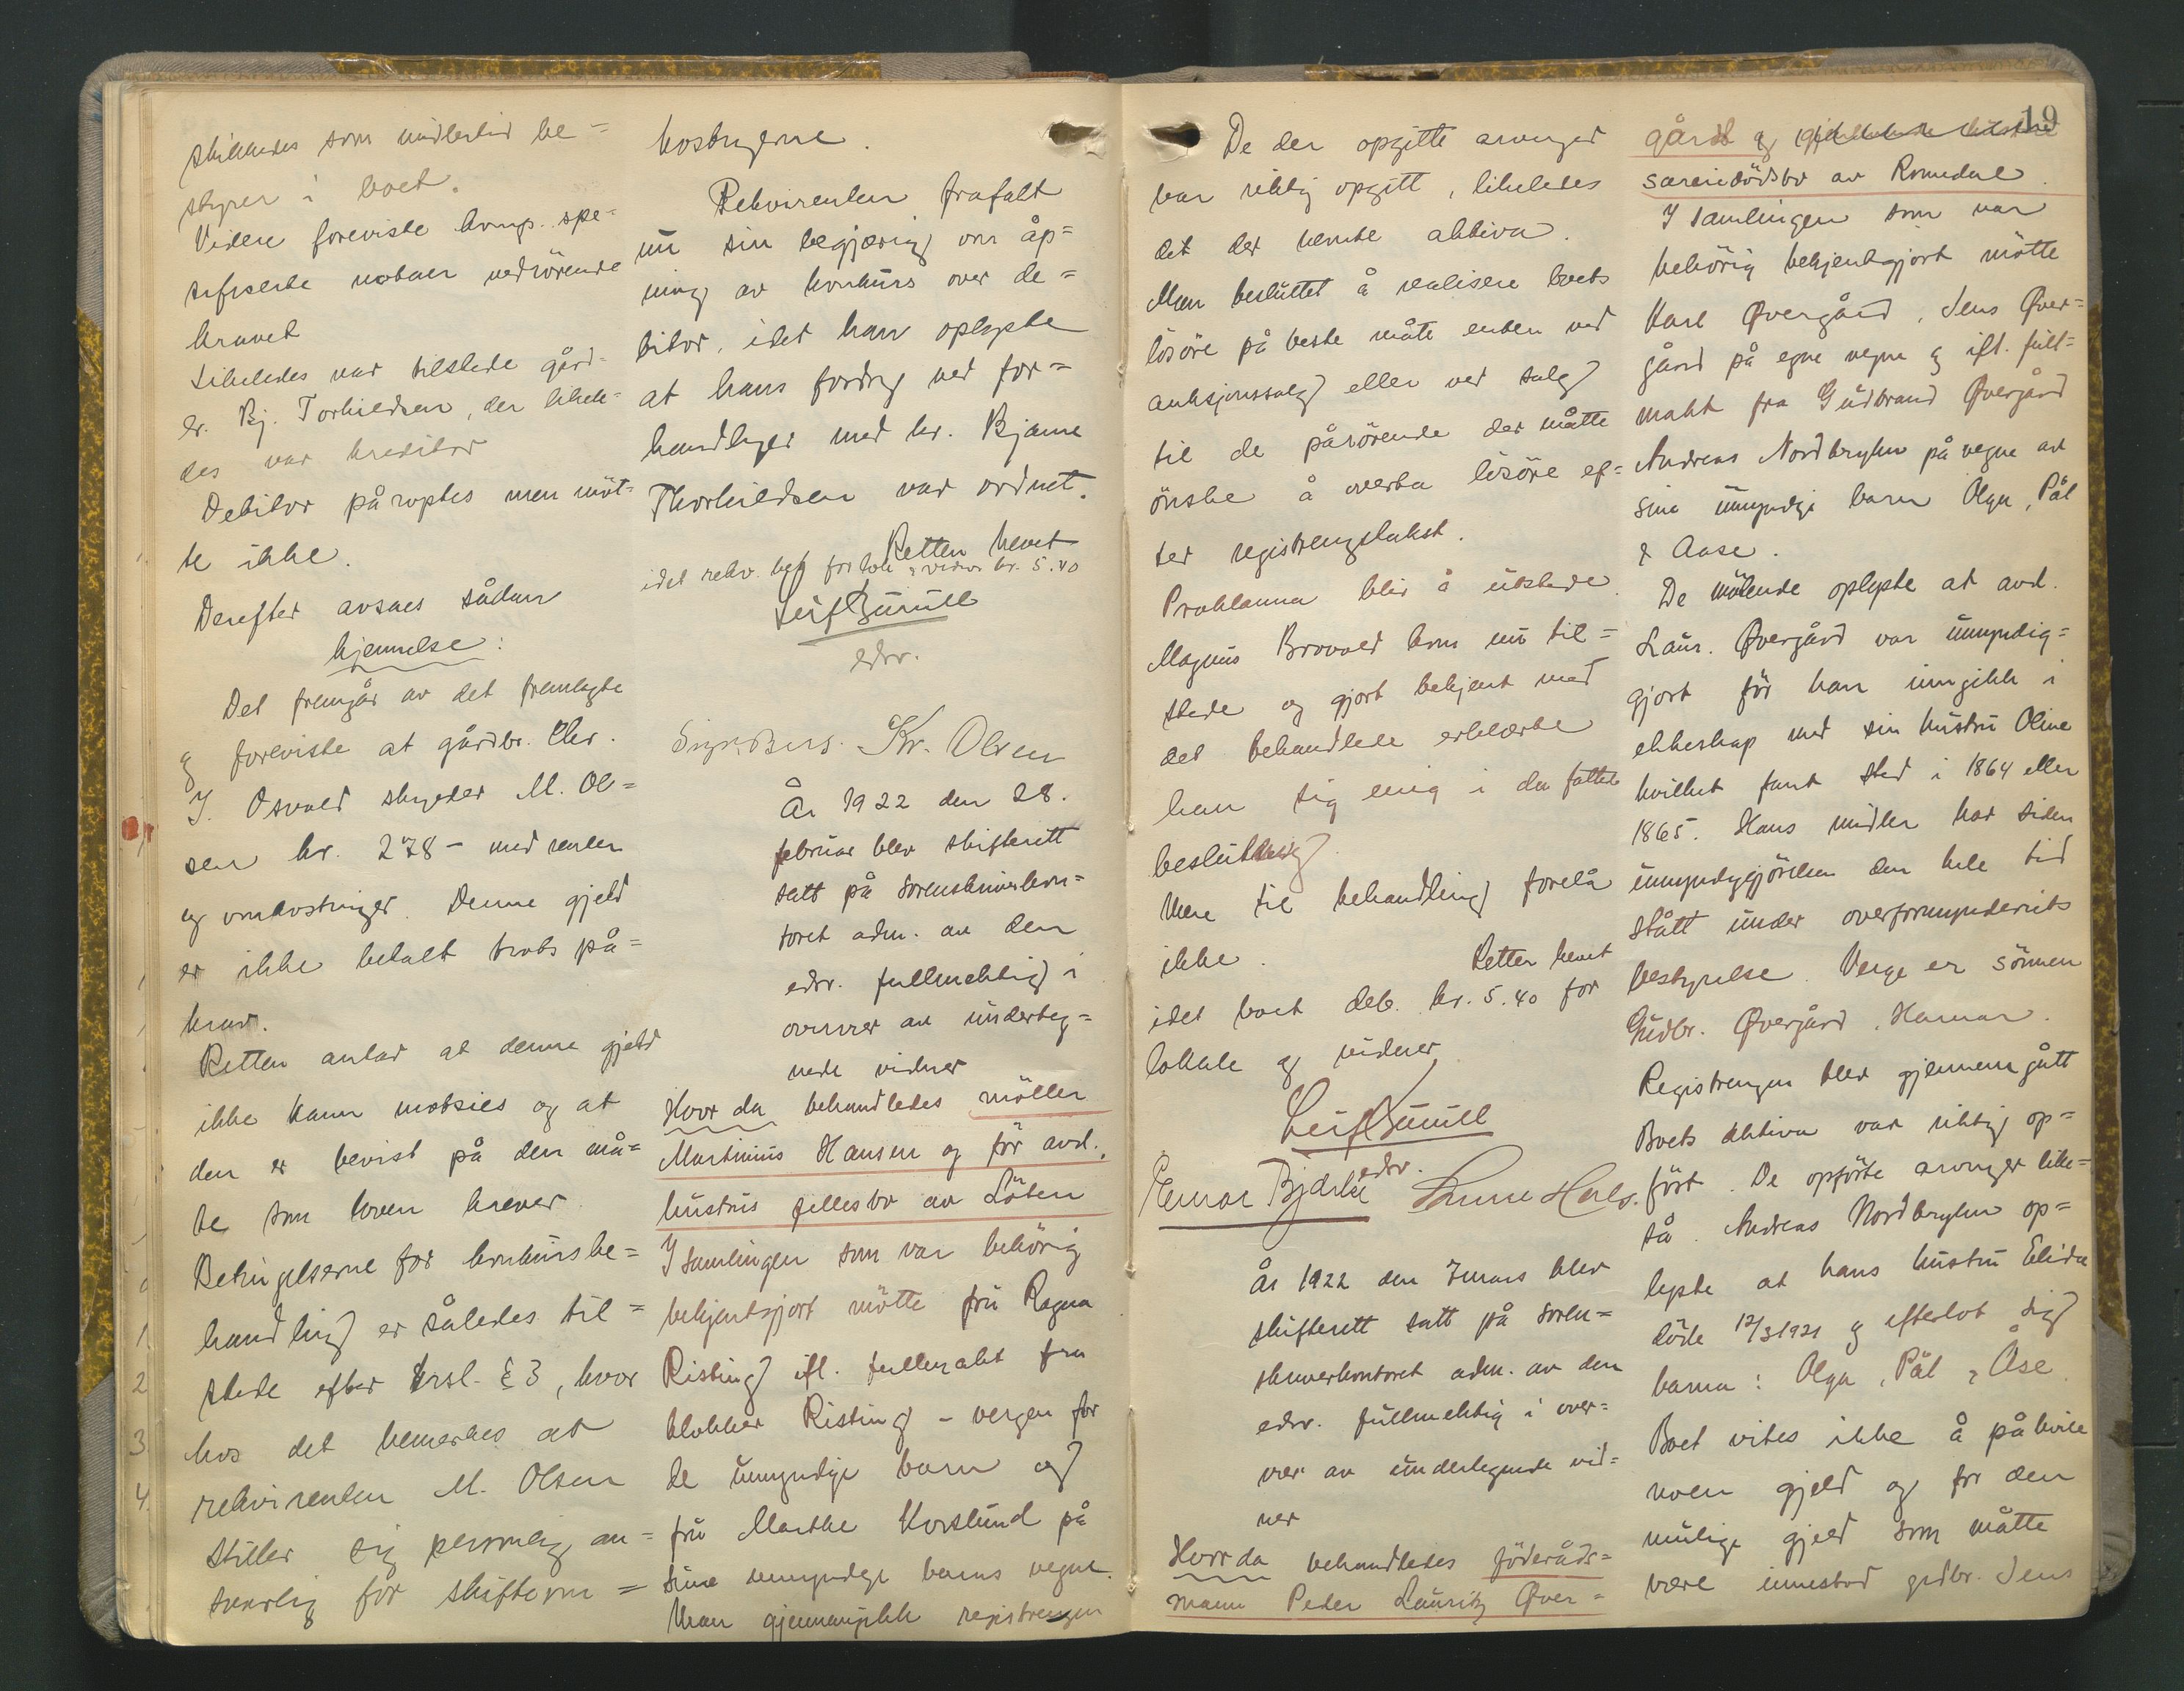 skikkedes som midlertid be=
styrer i boet.
Videre foreviste komp. spe=
sifiserte notaer vedrörende
kravet
Likeledes var tilstede gård=
br. Bj. Torkildsen, der likele=
des var kreditor
Debitor påroptes men möt=
te ikke.
Derefter avsaes sådan
kjennelse:
Det fremgår av det fremlagte
og foreviste at gårdbr. Chr.
I. Osvold skylder M. Ol=
sen kr. 278 - med renter
og omkostninger. Denne gjeld
er ikke betalt trots på=
krav.
Retten antar at denne gjeld
ikke kann motsies og at
den er bevist på den må=
te som loven krever.
Betingelserne for konkursbe=
handling er således til=
stede efter krsl. § 3, hvor
hos det bemerkes at
rekvirenten M. Olsen
stiller sig personlig an=
svarlig for skifteom=
kostngerne.
Rekvirenten frafalt
nu sin begjæring om åp=
ning av konkurs over de=
bitor, idet han oplyste
at hans fordrg ved for=
handlinger med hr. Bjarne
Thorkildsen var ordnet.
Retten hevet
idet rekv. bet for lok & vidner kr. 5.40
Leif Zünüll
edsv.
Kr. Olsen
År 1922 den 28.
februar blev skifterett
satt på sorenskriverkon=
toret adm. av den
edsv. fullmektig i
overvær av underteg=
nede vidner
Hvor da behandledes möller
Martinius Hansen og för avd.
hustrus fellesbo av Löten
I samlingen som var behörig
bekjentgjort mötte fru Ragna
Risting ifl. fullmakt fra
klokker Risting - vergen for
de umyndige barn og
fru Marthe Korslund på
sine umyndige barns vegne.
Man gjennemgikk registrengen
19
De der opgitte arvinger
var riktig opgitt, likeledes
det der nevnte aktiva.
Man besluttet å realisere boets
lösöre på beste måte enten ved
auksjonssalg eller ved salg
til de pårörende der måtte
önske å overta lösöre ef=
ter registrengstakst.
Proklama blir å utstede.
Magnus Brovold kom nu til=
stede og gjort bekjent med
det behandlede erklærte
han sig enig i den fattede
beslutning.
Mere til behandling forelå
ikke.
Retten hevet
idet boet deb. kr. 5.40 for
lokale og vidner
Leif Zünüll
edsv.
År 1922 den 7 mars blev
skifterett satt på soren=
skriverkontoret adm. av den
edsv. fullmektig i over=
vær av undertegnede vid=
ner
Hvor da behandledes föderåds=
mann Peder Lauritz Över=
gård og
særeiedödsbo av Romedal.
I samlingen som var
behörig bekjentgjort mötte
Karl Øvergård, Jens Øver=
gård på egne vegne og ifl. full=
makt fra Gudbrand Øvergård
Andreas Nordbryhn på vegne av
sine umyndige barn Olga, Pål
& Aase.
De mötende oplyste at avd.
Laur. Øvergård var umyndig=
gjort för han inngikk i
ekteskap med sin hustru Oline
hvilket fant sted i 1864 eller
1865. Hans midler har siden
umyndiggjörelsen den hele tid
stått under overformynderiets
bestyrelse. Verge er sönnen
Gudbr. Øvergård, Hamar.
Registrengen blev gjennemgått
Boets aktiva var riktig op=
fört. De opförte arvinger like=
så. Andreas Nordbryhn op=
lyste at hans hustru Elida
döde 12/3 1921 og efterlot sig
barna: Olga, Pål & Åse.
Boet vites ikke å påhvile
noen gjeld og for den
mulige gjeld som måtte
være innestod grdbr. Jens